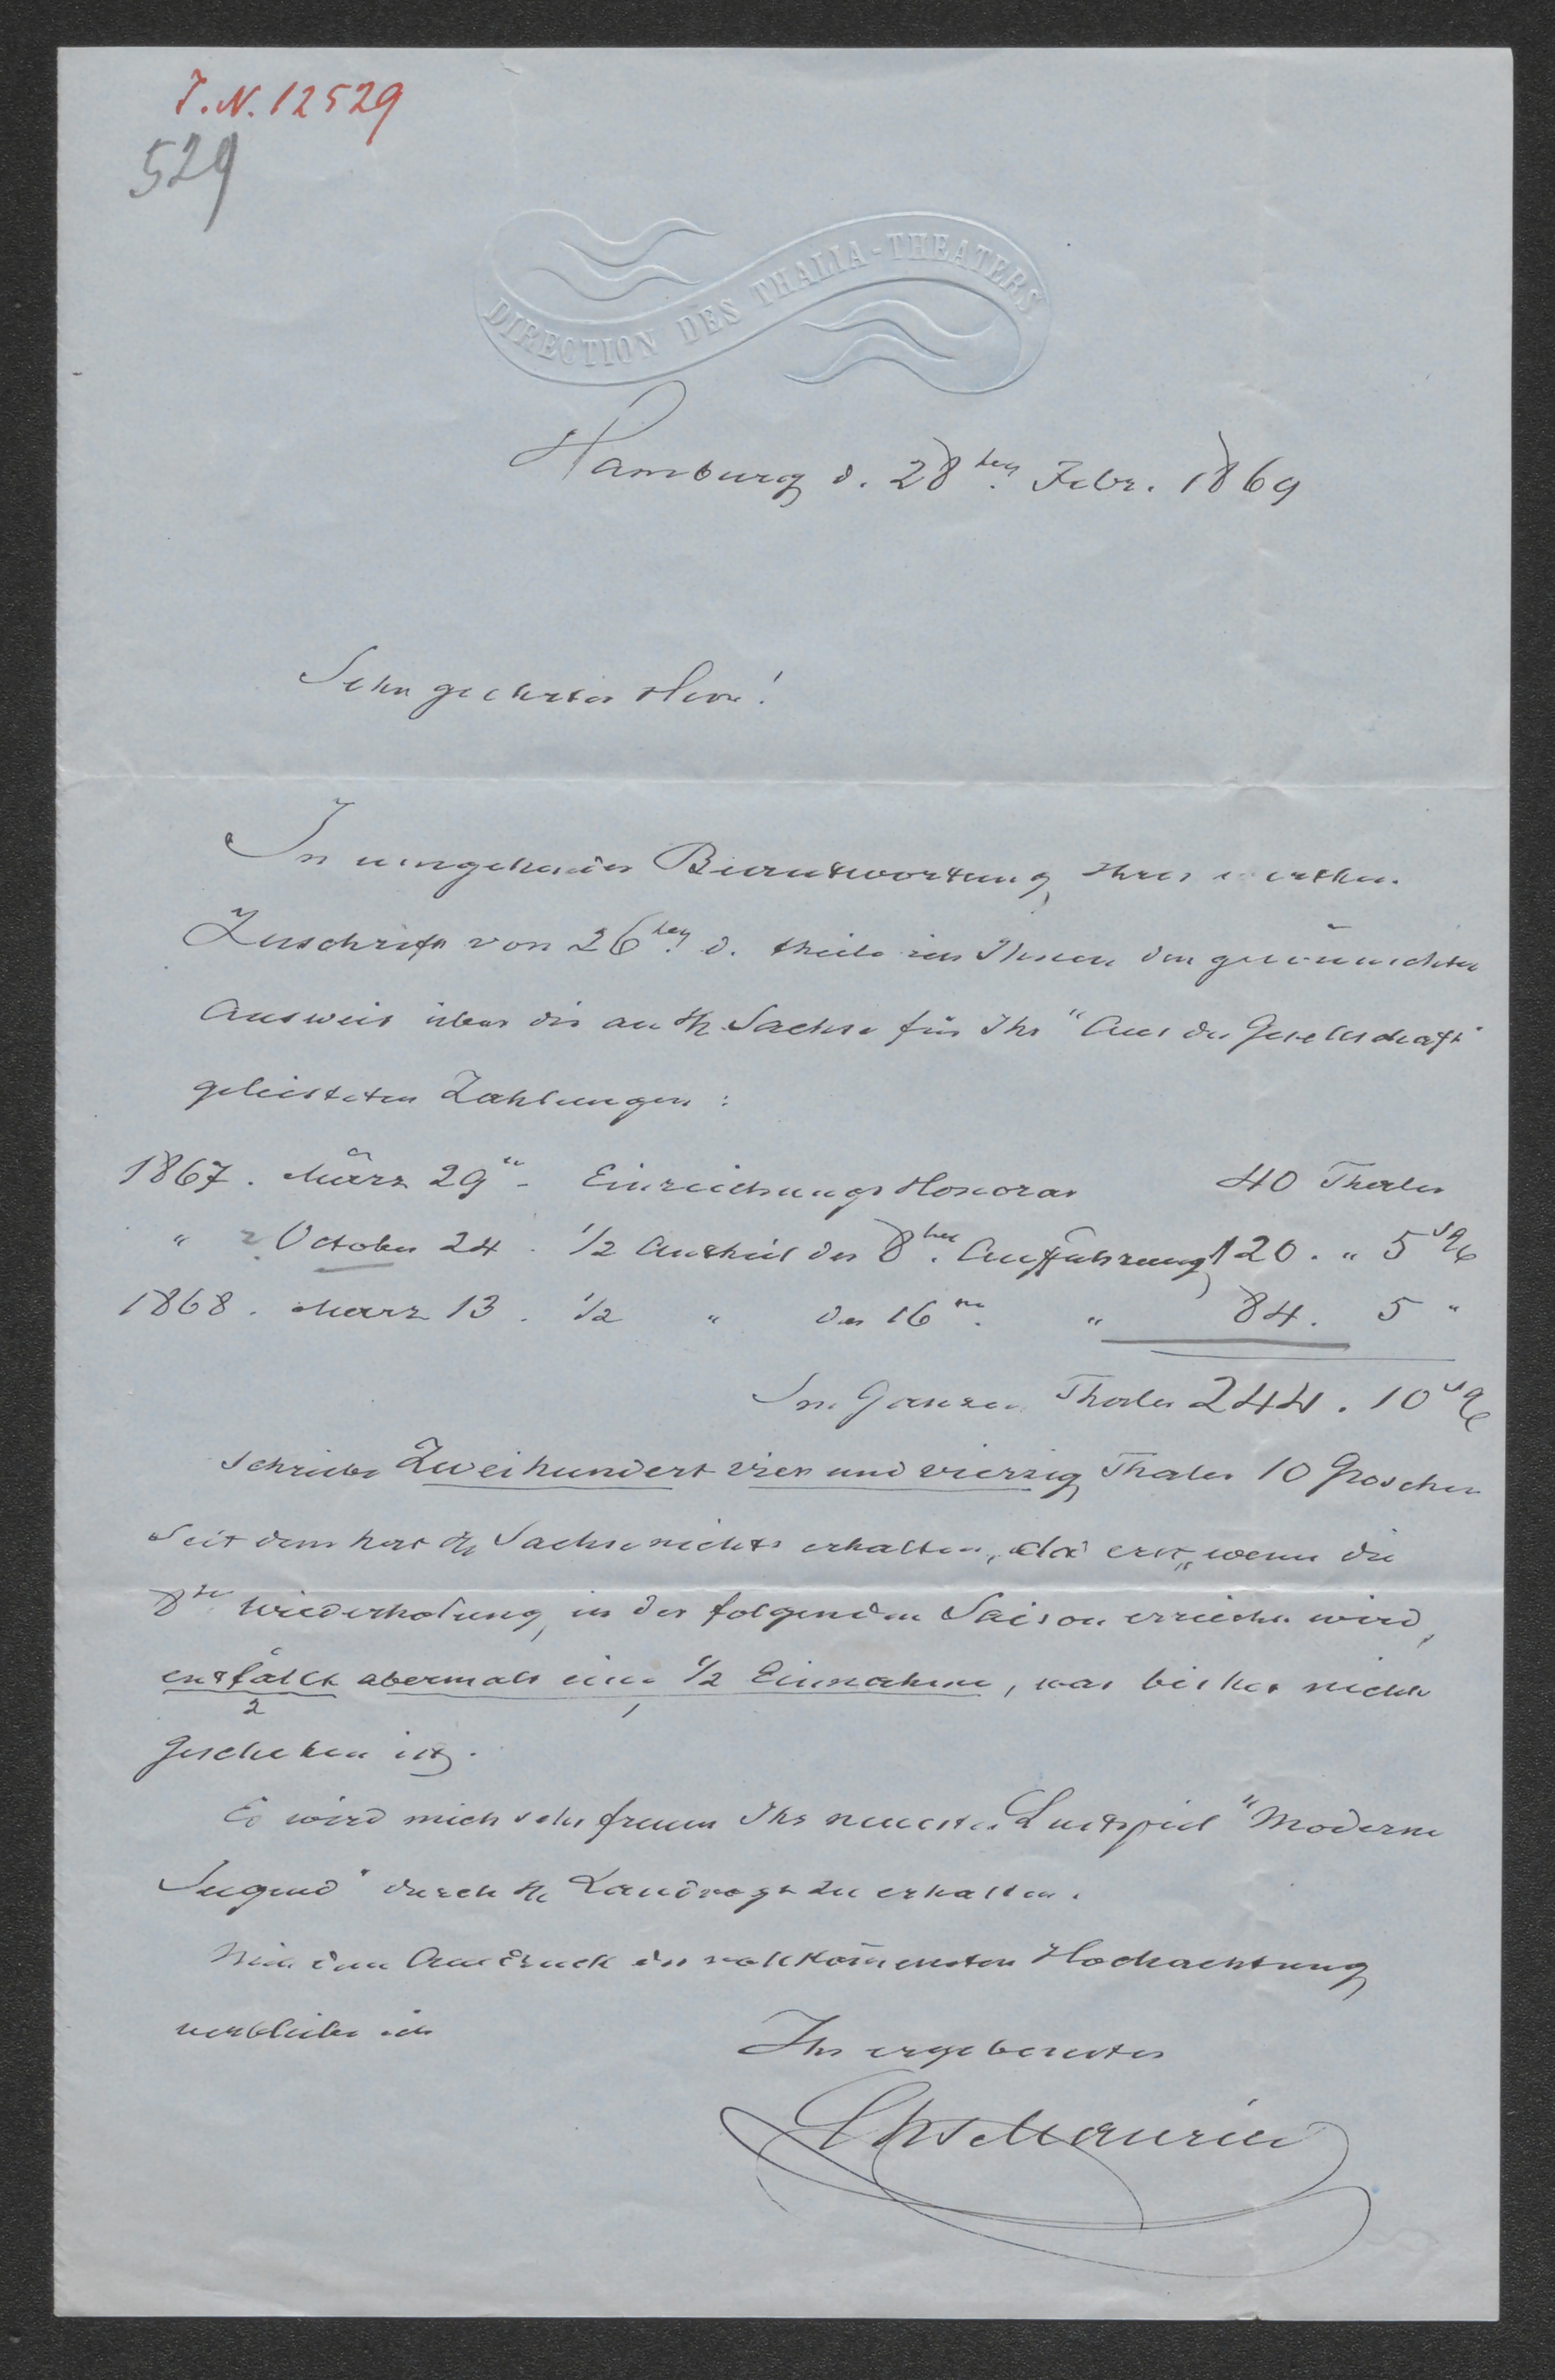 I.N. 12529
529
DIRECTION DES THALIA-THEATERS
Hamburg d. 28ten Febr. 1869
Sehr geehrter Herr!
In umgehender Beantwortung Ihrer werthen
Zuschrift von 26ten d. theile ich Ihnen den gewünschten
Ausweis über die an H Sachse für Ihr "Aus der Gesellschaft"
geleisteten Zahlungen:
1867. März 29 - Einreichungs Honorar 40 Thaler
" October 24. 1/2 Antheil der 8ten Aufführung 120. " 5 Sg
1868. März 13. 1/2 " der 16ten " 84. 5 "
Im Ganzen Thaler 244. 10 Sg
schreibe Zweihundert vier und vierzig Thaler 10 Groschen
Seit dem hat H Sachse nichts erhalten, da erst, wenn die
8te Wiederholung in der folgenden Saison erreicht wird,
entfällt abermals eine 1/2 Einnahme, was bisher nicht
2 1
geschehen ist.
Es wird mich sehr freuen Ihr neuestes Lustspiel "Moderne
Jugend" durch H Landvogt zu erhalten.
Mit dem Ausdruck der vollkom̄ensten Hochachtung
verbleibe ich
Ihr ergebenster
Maurice